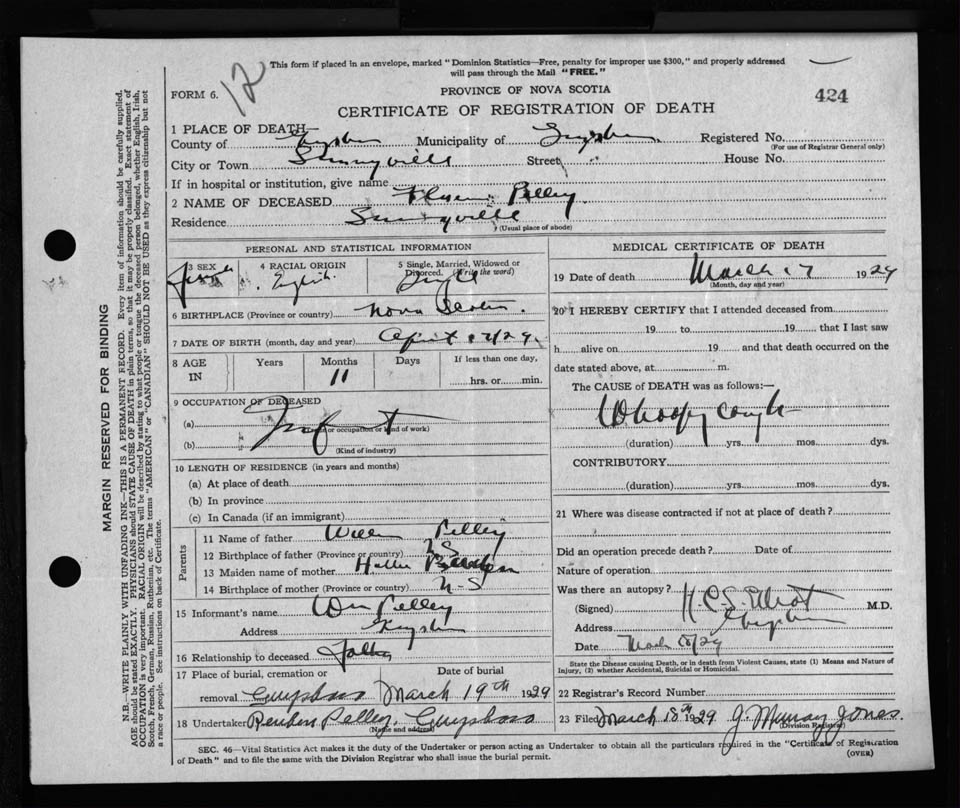 12
This form if placed in an envelope, marked "Dominion Statistics—Free, penalty for improper use $300," and properly addressed
will pass through the Mail "FREE."
PROVINCE OF NOVA SCOTIA
424
FORM 6.
CERTIFICATE OF REGISTRATION OF DEATH
1 PLACE OF DEATH—
County of Municipality of Registered No.
(For use of Registrar General only)
City or Town Sunnyville Street House No.
If in hospital or institution, give name
2 NAME OF DECEASED Pelley
Residence Sunnyville
(Usual place of abode)
PERSONAL AND STATISTICAL INFORMATION
3 SEX Female 4 RACIAL ORIGIN English 5 Single, Married, Widowed or Divorced. (Write the word) Single
6 BIRTHPLACE (Province or country) Nova Scotia
7 DATE OF BIRTH (month, day and year) April
8 AGE IN Years Months 11 Days If less than one day, hrs. or min.
9 OCCUPATION OF DECEASED
(a) Infant
(Trade or occupation or kind of work)
(b)
(Kind of industry)
10 LENGTH OF RESIDENCE (in years and months)
(a) At place of death
(b) In province
(c) In Canada (if an immigrant)
Parents
11 Name of father Pelley
12 Birthplace of father (Province or country) N S
13 Maiden name of mother
14 Birthplace of mother (Province or country) N-S
15 Informant's name Wm Pelley
Address
16 Relationship to deceased Father
17 Place of burial, cremation or Date of burial
removal Guysboro March 19th 1929
18 Undertaker Reuben Pelley, Guysboro
(Name and address)
MEDICAL CERTIFICATE OF DEATH
19 Date of death March 17 1929
(Month, day and year)
20 I HEREBY CERTIFY that I attended deceased from
19 to 19 that I last saw
h alive on 19 and that death occurred on the
date stated above, at m.
The CAUSE of DEATH was as follows:—
Whoopy cough
(duration) yrs. mos. dys.
CONTRIBUTORY
(duration) yrs. mos. dys.
21 Where was disease contracted if not at place of death?
Did an operation precede death? Date of
Nature of operation
Was there an autopsy?
(Signed) M.D.
Address
Date March 18/29
State the Disease causing Death, or in death from Violent Causes, state (1) Means and Nature of
Injury, (2) whether Accidental, Suicidal or Homicidal.
22 Registrar's Record Number
23 Filed March 18th 1929 J. Murray Jones.
(Division Registrar)
SEC. 46—Vital Statistics Act makes it the duty of the Undertaker or person acting as Undertaker to obtain all the particulars required in the "Certificate of Registration
of Death" and to file the same with the Division Registrar who shall issue the burial permit.
(OVER)
MARGIN RESERVED FOR BINDING
N.B.—WRITE PLAINLY WITH UNFADING INK—THIS IS A PERMANENT RECORD. Every item of information should be carefully supplied.
AGE should be stated EXACTLY. PHYSICIANS should STATE CAUSE OF DEATH in plain terms, so that it may be properly classified. Exact statement of
OCCUPATION is very important. RACIAL ORIGIN will be described by stating to what people or tongue the deceased person belonged, whether English, Irish,
Scotch, French, German, Russian, Ruthenian, etc. The terms "AMERICAN" or "CANADIAN" SHOULD NOT BE USED as they express citizenship but not
a race or people. See instructions on back of Certificate.